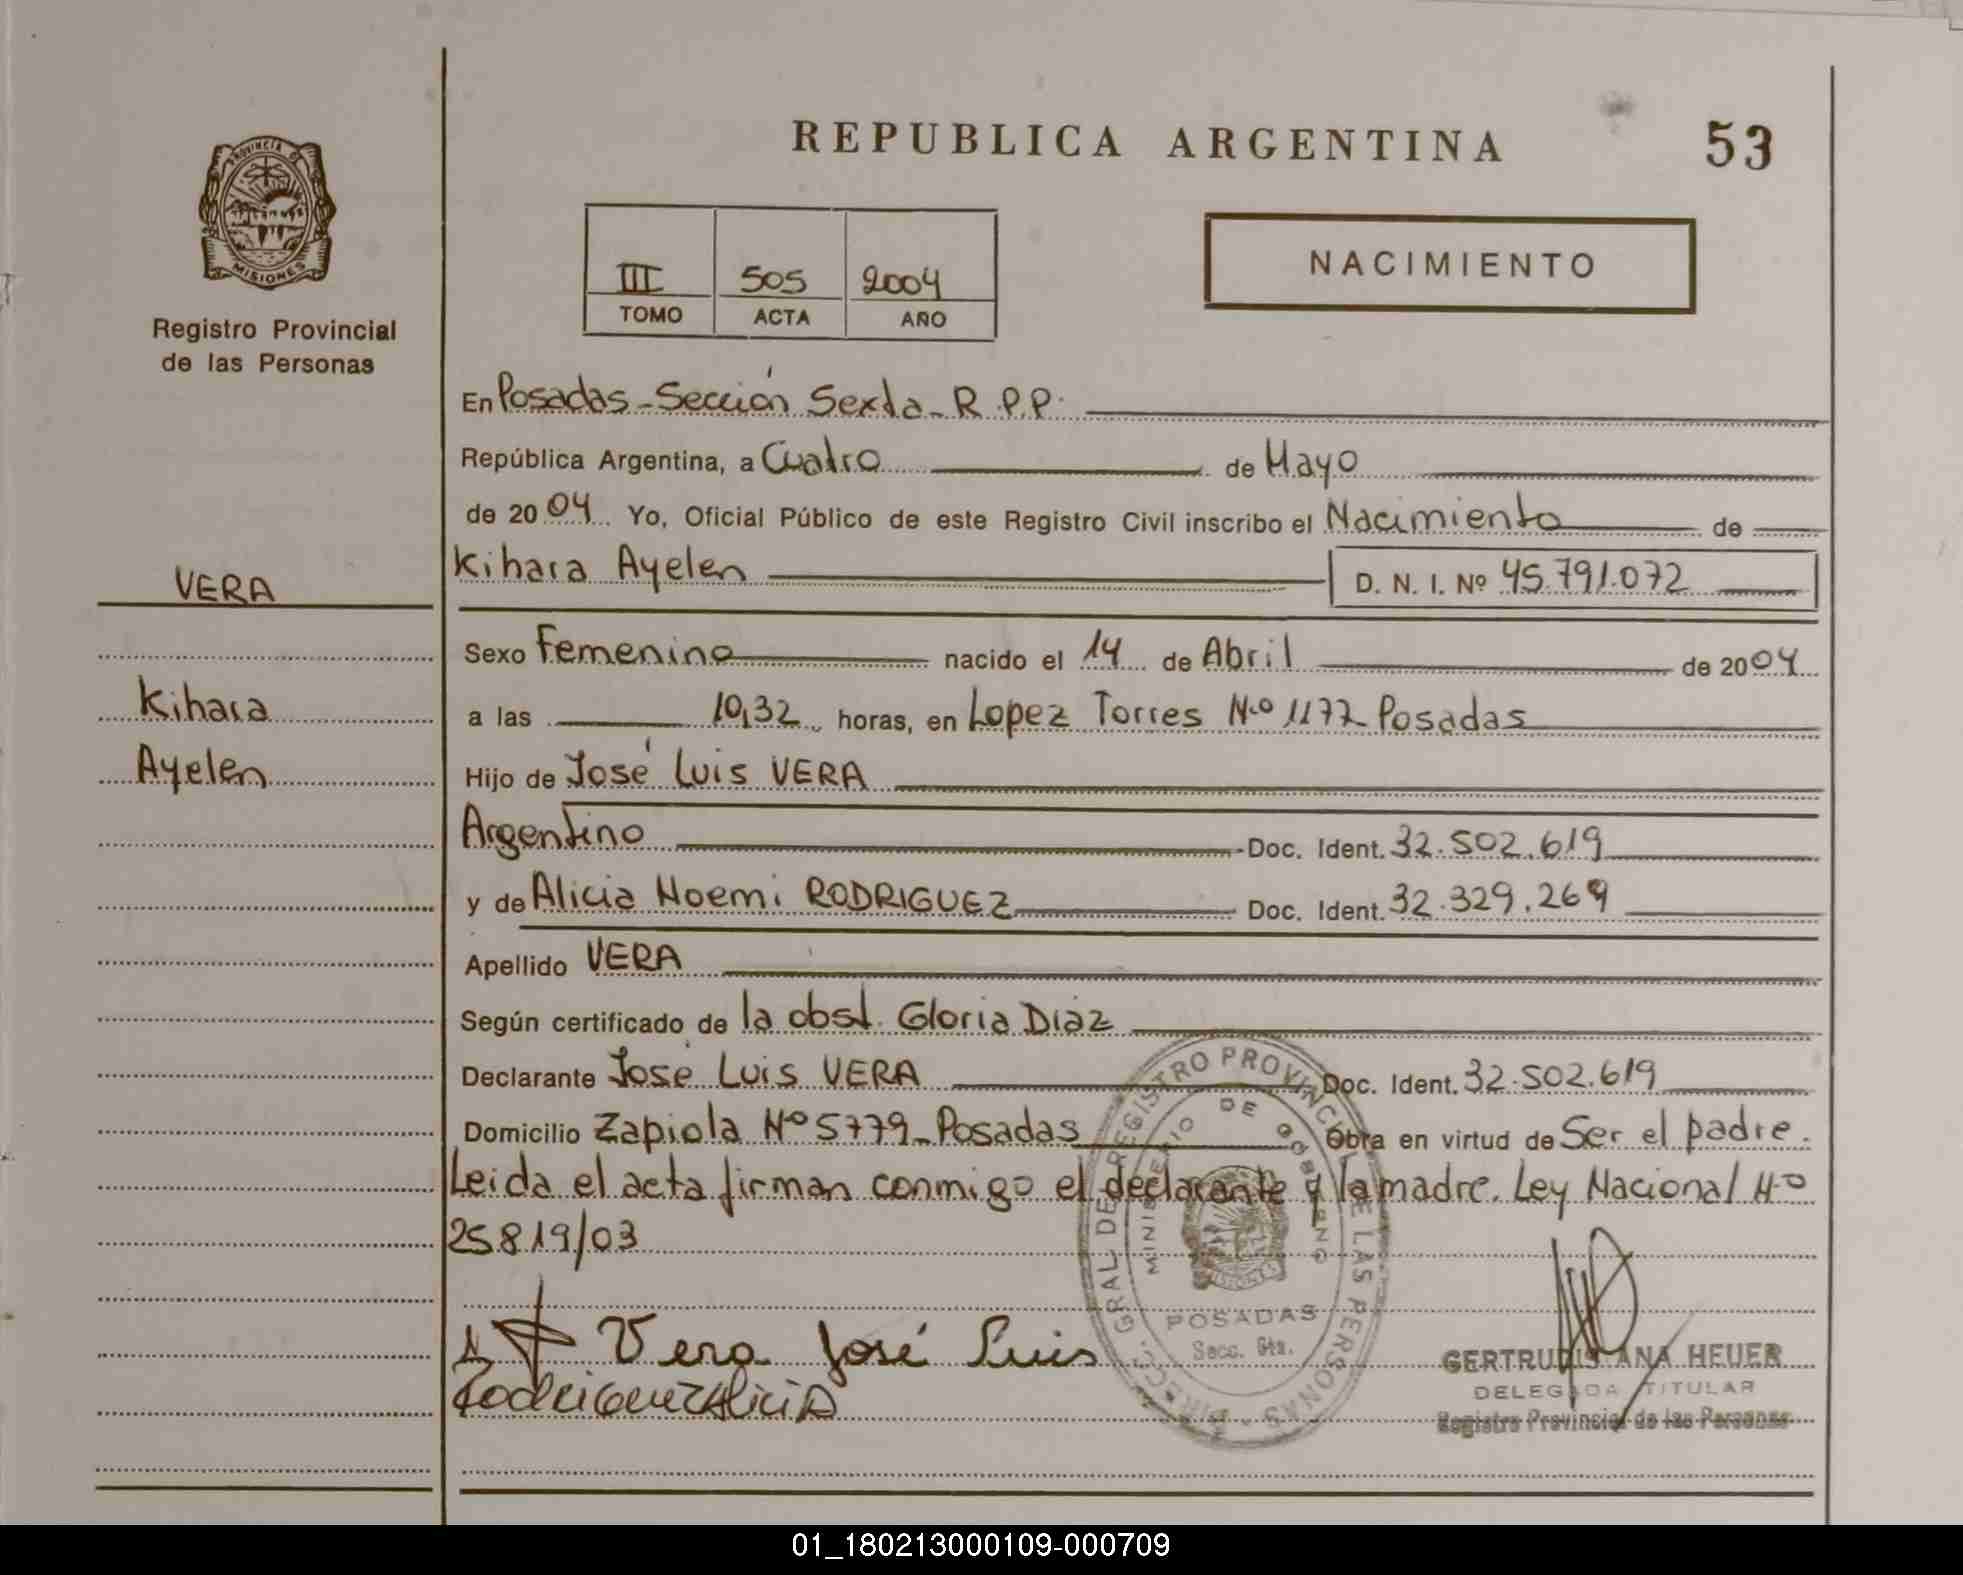 REPUBLICA ARGENTINA
53
PROVINCIA DE
MISIONES
Registro Provincial
de las Personas
III 505 2004
TOMO ACTA AÑO
NACIMIENTO
En Posadas - Sección Sexta - R.P.P.
República Argentina, a Cuatro de Mayo
de 2004 Yo, Oficial Público de este Registro Civil inscribo el Nacimiento de
Kihara Ayelen D. N. I. Nº 45.791.072
VERA
Kihara
Ayelen
Sexo Femenino nacido el 14 de Abril de 2004
a las 10,32 horas, en Lopez Torres Nº 1177 Posadas
Hijo de José Luis VERA
Argentino Doc. Ident. 32.502.619
y de Alicia Noemi RODRIGUEZ Doc. Ident. 32.329.269
Apellido VERA
Según certificado de la obst. Gloria Diaz
Declarante José Luis VERA Doc. Ident. 32.502.619
Domicilio Zapiola Nº 5779 - Posadas Obra en virtud de Ser el padre.
Leida el acta firman conmigo el declarante y la madre. Ley Nacional Nº
25819/03
DIRECC. GRAL DE REGISTRO PROVINCIAL DE LAS PERSONAS
MINISTERIO DE GOBIERNO
MISIONES
POSADAS
Secc. 6ta.
Vera José Luis
Rodriguez Alicia
GERTRUDIS ANA HEUER
DELEGADA TITULAR
Registro Provincial de las Personas
01_180213000109-000709